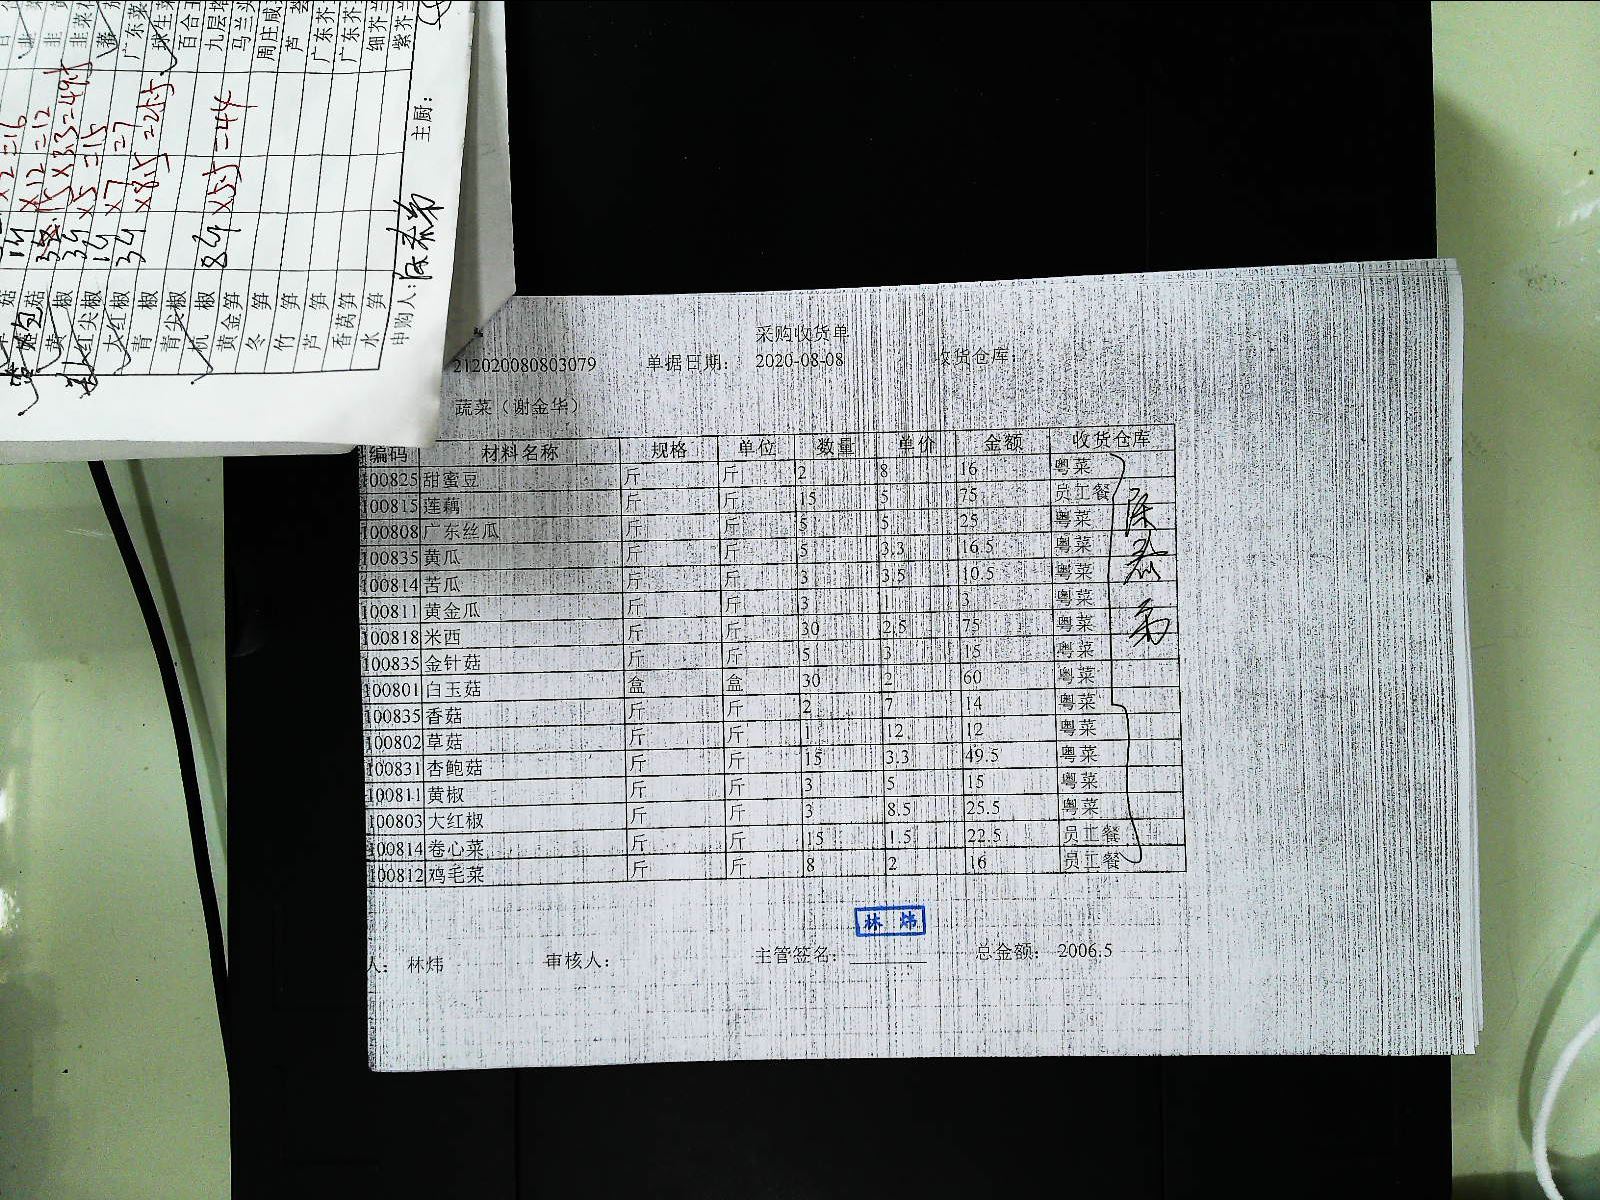 采购收货单
212020080803079 单据日期： 2020-08-08 收货仓库：
蔬菜（谢金华）
编码 材料名称 规格 单位 数量 单价 金额 收货仓库
100825 甜蜜豆 斤 斤 2 8 16 粤菜
100815 莲藕 斤 斤 15 5 75 员工餐
100808 广东丝瓜 斤 斤 5 5 25 粤菜
100835 黄瓜 斤 斤 5 3.3 16.5 粤菜
100814 苦瓜 斤 斤 3 3.5 10.5 粤菜
100811 黄金瓜 斤 斤 3 1 3 粤菜
100818 米西 斤 斤 30 2.5 75 粤菜
100835 金针菇 斤 斤 5 3 15 粤菜
100801 白玉菇 盒 盒 30 2 60 粤菜
100835 香菇 斤 斤 2 7 14 粤菜
100802 草菇 斤 斤 1 12 12 粤菜
100831 杏鲍菇 斤 斤 15 3.3 49.5 粤菜
100811 黄椒 斤 斤 3 5 15 粤菜
100803 大红椒 斤 斤 3 8.5 25.5 粤菜
100814 卷心菜 斤 斤 15 1.5 22.5 员工餐
100812 鸡毛菜 斤 斤 8 2 16 员工餐
林炜
人： 林炜 审核人： 主管签名： 总金额： 2006.5
红尖椒 ×7=7
大红椒 ×8.5=25.5
青椒
青尖椒
杭椒 ×5.5=44
黄金笋
冬笋
竹笋
芦笋
香莴笋
水笋
申购人： 主厨：
广东菜
球生菜
马兰头
广东芥
广东芥
细芥兰
紫芥兰